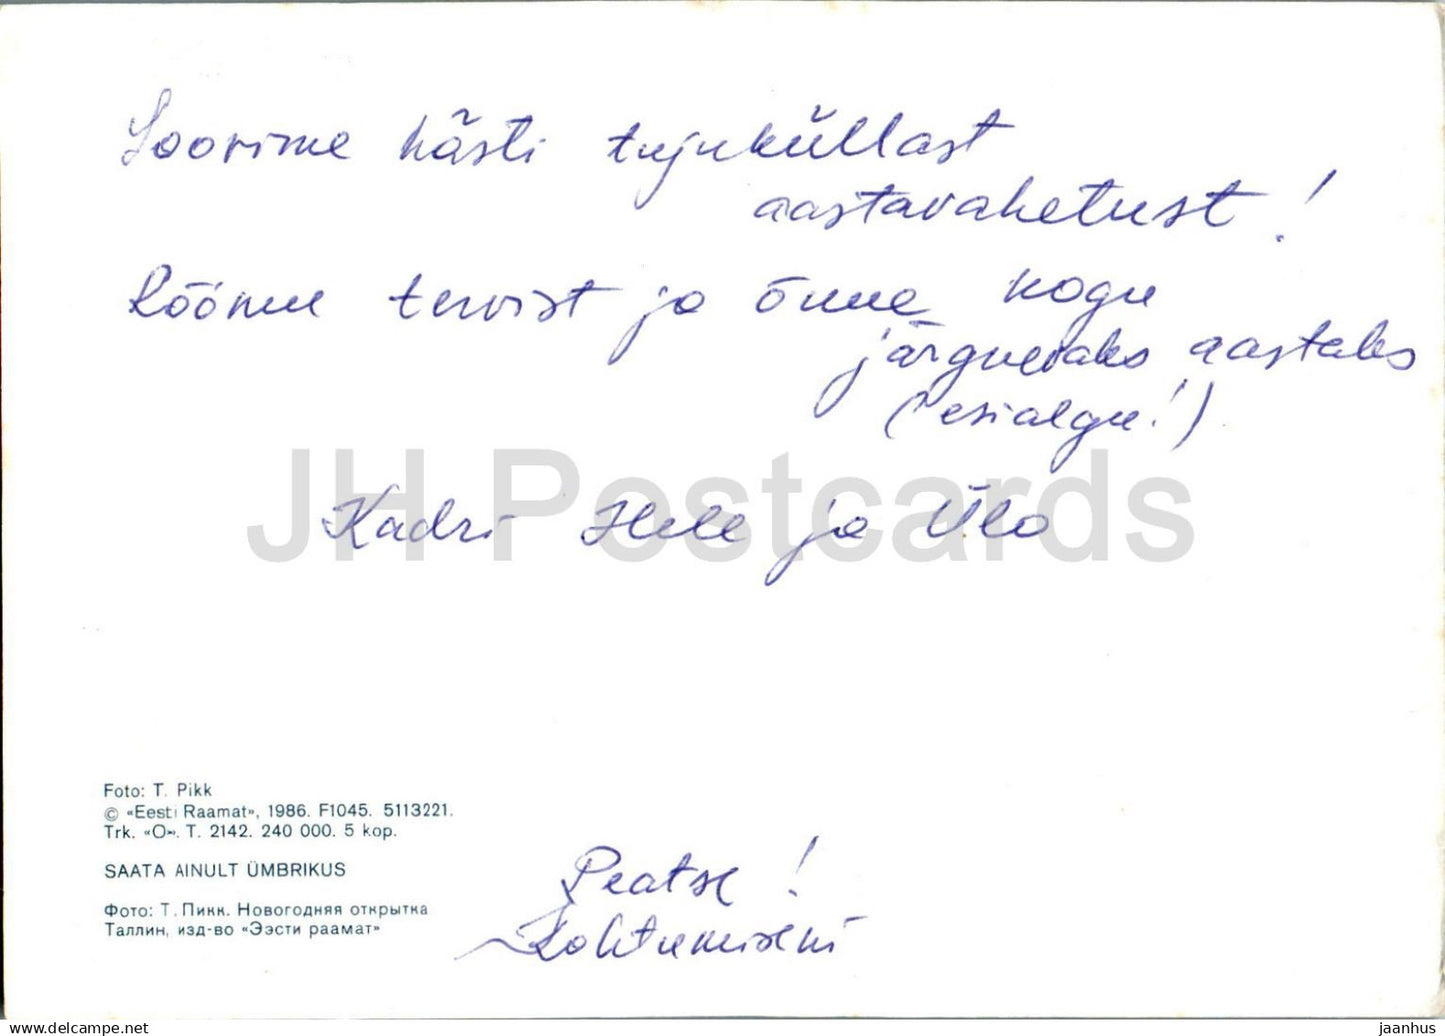 Soovime hästi tujuküllast
aastavahetust!
Rõõmu tervist ja õnne kogu
järgnevaks aastaks
(esialgu!)
Kadri Hele ja Ülo
JH Postcards
Foto: T. Pikk
© «Eesti Raamat», 1986. F1045. 5113221.
Trk. «O». T. 2142. 240 000. 5 kop.
SAATA AINULT ÜMBRIKUS
Фото: Т. Пикк. Новогодняя открытка
Таллин, изд-во «Ээсти раамат»
Peatse!
Kohtumiseni
www.delcampe.net
jaanhus